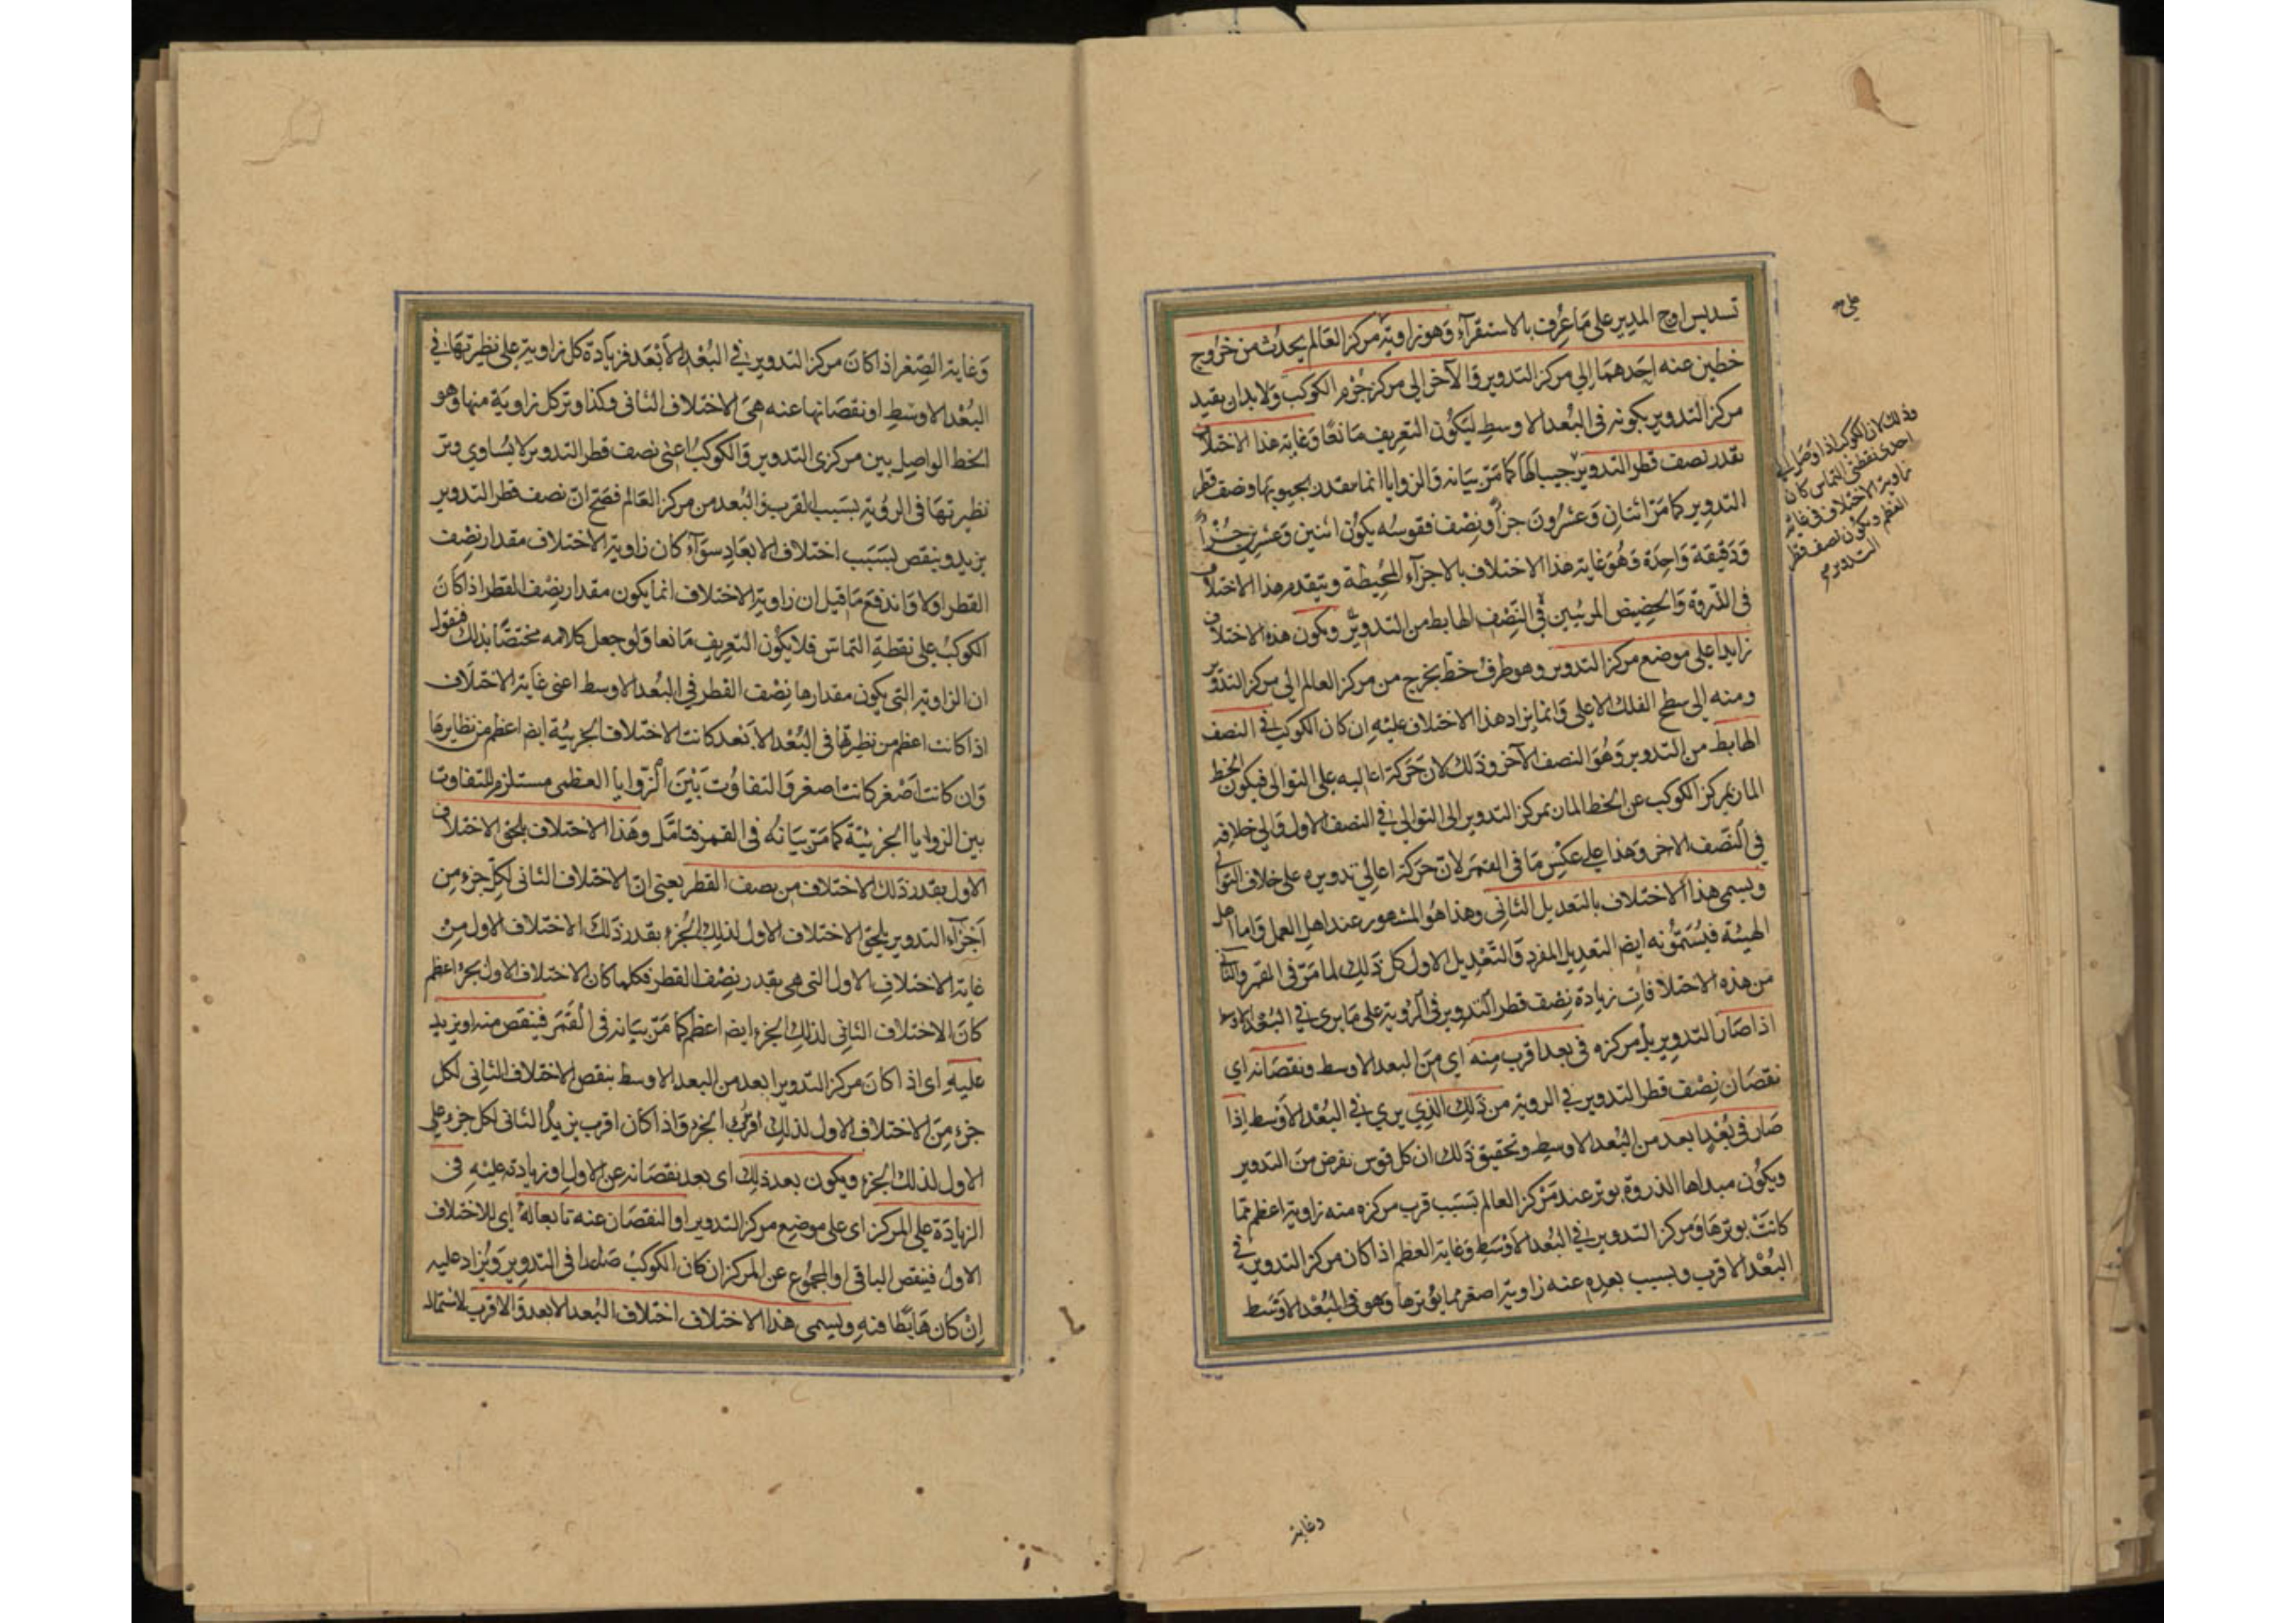 تسديس اوج المدير على ما عُرف بالاستقرآء وهو زاوية مركز العالم يحدث من خروج
خطين عنه احدهما الى مركز التدوير والآخر الى مركز جرم الكوكب ولا بد ان يقيد
مركز التدوير بكونه فى البعد الاوسط ليكون التعريف مانعا وغاية هذا الاختلاف
بقدر نصف قطر التدوير جيبا لها كما مرّ بيانه والزوايا انما مقدر بجيوبها ونصف قطر
التدوير كما مرّ اثنان وعشرون جزأ ونصف فقوسه يكون اثنين وعشرين جزأ
ودقيقة واحدة وهو غاية هذا الاختلاف بالاجزآء المحيطة وينعدم هذا الاختلاف
فى الذروة والحضيض المرئيين فى النصف الهابط من التدوير ويكون هذه الاختلاف
زايدا على موضع مركز التدوير وهو طرف خط يخرج من مركز العالم الى مركز التدوير
ومنه الى سطح الفلك الاعلى وانما يزاد هذا الاختلاف عليه ان كان الكوكب فى النصف
الهابط من التدوير وهو النصف الآخر وذلك لان حركة اعاليه على التوالى فيكون الخط
المار بمركز الكوكب عن الخط المار بمركز التدوير الى التوالى فى النصف الاول والى خلافه
فى النصف الاخر وهذا على عكس ما فى القمر لانّ حركة اعالى تدويره على خلاف التوالى
ويسمى هذا الاختلاف بالتعديل الثانى وهذا هو المشهور عند اهل العمل واما اهل
الهيئة فيسمّونه ايضا التعديل المفرد والتعديل الاول كل ذلك لما مرّ فى القمر والثانى
من هذه الاختلافات زيادة نصف قطر التدوير فى الرؤية على ما يرى فى البعد الاوسط
اذا صار التدوير بل مركزه فى بعد اقرب منه اى من البعد الاوسط ونقصانه اى
نقصان نصف قطر التدوير فى الروية من ذلك الذى يرى فى البعد الاوسط اذا
صار فى بُعد ابعد من البعد الاوسط وتحقيق ذلك ان كل قوس تفرض من التدوير
ويكون مبداها الذروة يوتر عند مركز العالم بسبب قرب مركزه منه زاوية اعظم مما
كانت يوترها ومركز التدوير فى البعد الاوسط وغاية العظم اذا كان مركز التدوير فى
البعد الاقرب وبسبب بعده عنه زاوية اصغر مما يوترها وهو فى البعد الاوسط
وذلك لان الكوكب اذا وصل الى
احدى نقطتى التماس كان
زاوية الاختلاف فى غاية
العظم ويكون نصف قطر
التدوير
وغاية
وغاية الصغر اذا كان مركز التدوير فى البعد الأبعد فزيادة كل زاوية على نظيرتها فى
البعد الاوسط او نقصانها عنه هى الاختلاف الثانى وكذا وتر كل زاوية منها وهو
الخط الواصل بين مركزى التدوير والكوكب اعنى نصف قطر التدوير لا يساوى وتر
نظيرتها فى الروية بسبب القرب والبعد من مركز العالم فصح انّ نصف قطر التدوير
يزيد وينقص بسبب اختلاف الابعاد سوآء كان زاوية الاختلاف مقدار نصف
القطر اولا واندفع ما قيل ان زاوية الاختلاف انما يكون مقدار نصف القطر اذا كان
الكوكب على نقطة التماس فلا يكون التعريف مانعا ولو جعل كلامه مختصّا بذلك فنقول
ان الزاوية التى يكون مقدارها نصف القطر فى البعد الاوسط اعنى غاية الاختلاف
اذا كانت اعظم من نظيرتها فى البعد الأبعد كانت الاختلاف الجزئية ايضا اعظم من نظايرها
وان كانت اصغر كانت اصغر والتفاوت بين الزوايا العظمى مستلزم للتفاوت
بين الزوايا الجزئية كما مرّ بيانه فى القمر فتامل وهذا الاختلاف يلحق الاختلاف
الاول بقدر ذلك الاختلاف من نصف القطر يعنى انّ الاختلاف الثانى لكل جزء من
اجزآء التدوير يلحق الاختلاف الاول لذلك الجزء بقدر ذلك الاختلاف الاول من
غاية الاختلاف الاول التى هى بقدر نصف القطر فكلما كان الاختلاف الاول بجزء اعظم
كان الاختلاف الثانى لذلك الجزء ايضا اعظم كما مرّ بيانه فى القمر فينقص منه او يزيد
عليه اى اذا كان مركز التدوير ابعد من البعد الاوسط ينقص الاختلاف الثانى لكل
جزء من الاختلاف الاول لذلك الجزء واذا كان اقرب يزيد الثانى لكل جزء على
الاول لذلك الجزء ويكون بعد ذلك اى بعد نقصانه عن الاول او زيادته عليه فى
الزيادة على المركز اى على موضع مركز التدوير او النقصان عنه تابعا له اى للاختلاف
الاول فينقص الباقى او المجموع عن المركز ان كان الكوكب صاعدا فى التدوير ويزاد عليه
ان كان هابطا فيه ويسمى هذا الاختلاف اختلاف البعد الابعد والاقرب لاشتماله